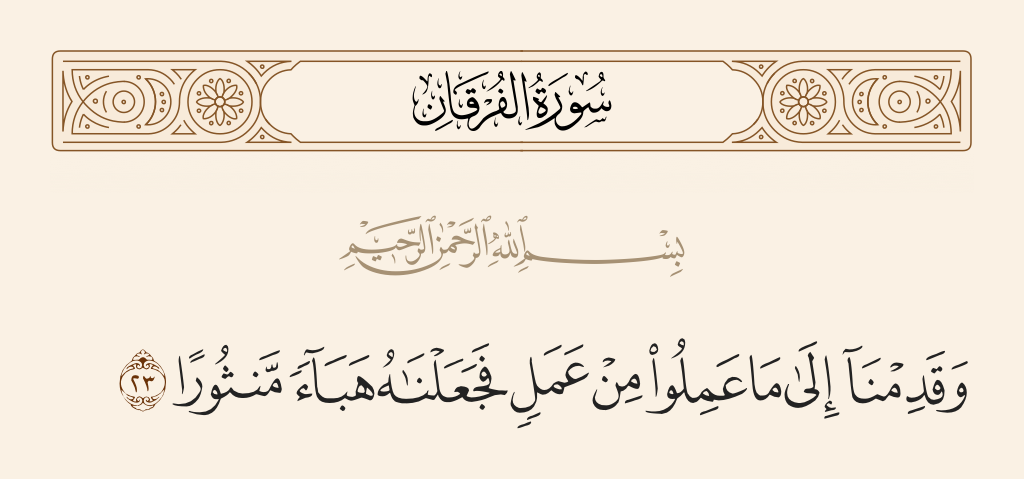 سُورَةُ الفُرْقَانِ
بِسْمِ ٱللَّهِ ٱلرَّحْمَٰنِ ٱلرَّحِيمِ
وَقَدِمْنَآ إِلَىٰ مَا عَمِلُوا۟ مِنْ عَمَلٍ فَجَعَلْنَٰهُ هَبَآءً مَّنثُورًا ٢٣